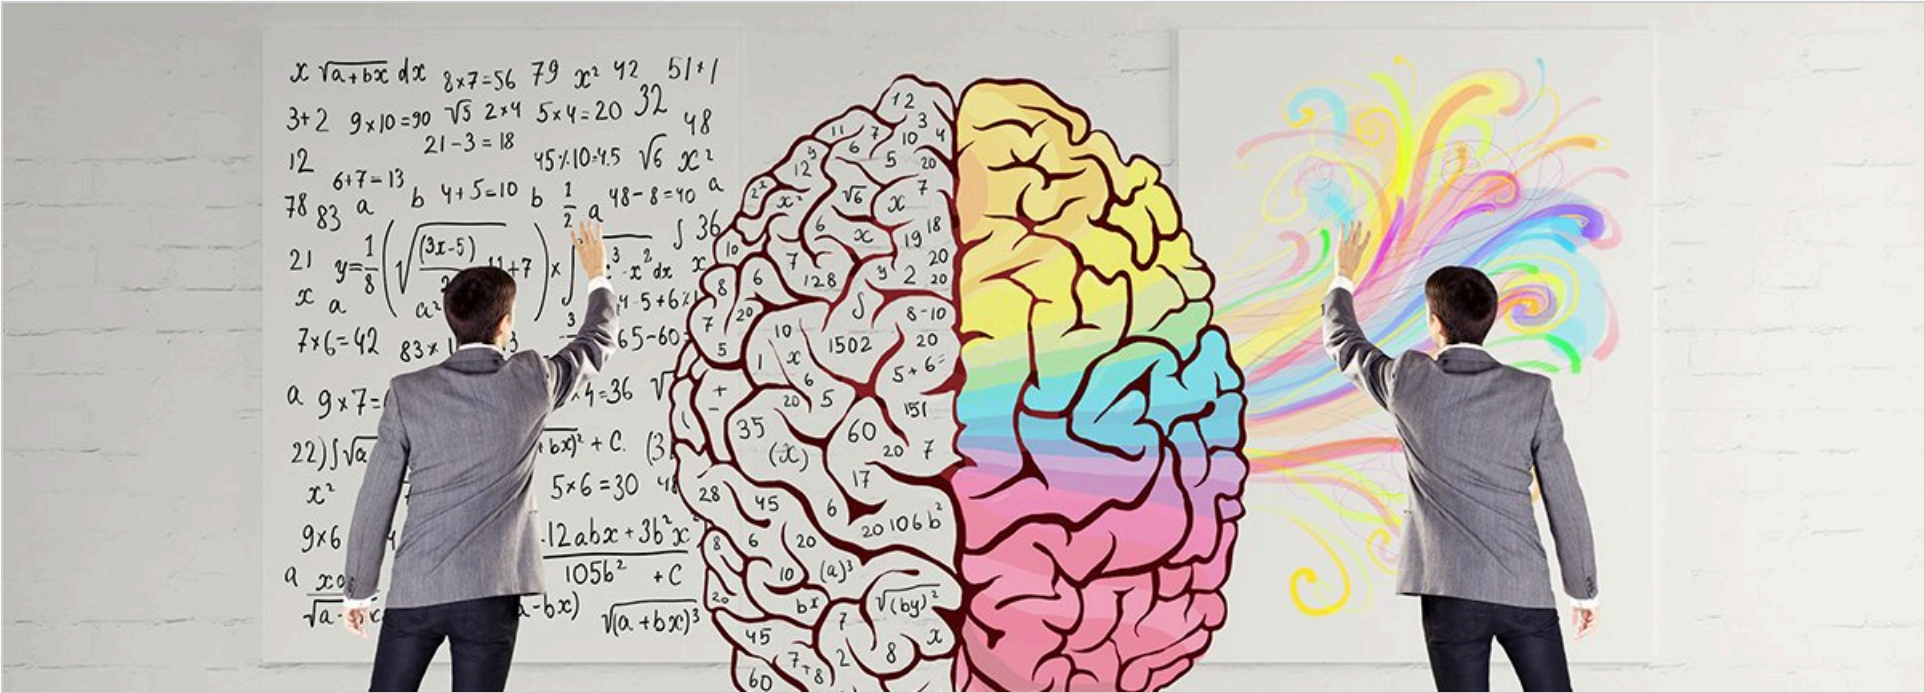 x √a+bx dx 8×7=56 79 x² 42 51+1
3+2 9×10=90 √5 2×4 5×4=20 32 48
21-3=18
12 45%10=4.5 √6 x²
6+7=13 b 4+5=10 b 1/2 a 48-8=40 a
78 83 a
21 y=1/8(√(3x-5) +7)× ∫ x² dx ∫ 36
x a a² x
4-5+6
7×6=42 83× 3 65-60=
a 9×7= 4=36 √
22)∫√a +bx)²+C. (3
x² 5×6=30 48
9×6 12abx+3b²x²
a 105b² +C
√a- a-bx) √(a+bx)³
12
11 7 10 3 4
6 5 20
12 y
2² x² √6 x 7
6 x 19 18
10 7 20
8 6 128 y 2 20
7 20 ∫ 8-10
5 10 1502 20
1 x 5+6=
+ 6
- 20 5 151
35 60
(x) 20 7
17
28 45 6
20 106b²
8 6 20
10 (a)³
20 bx √(by)²
7
45 x
7+8 2 8
60